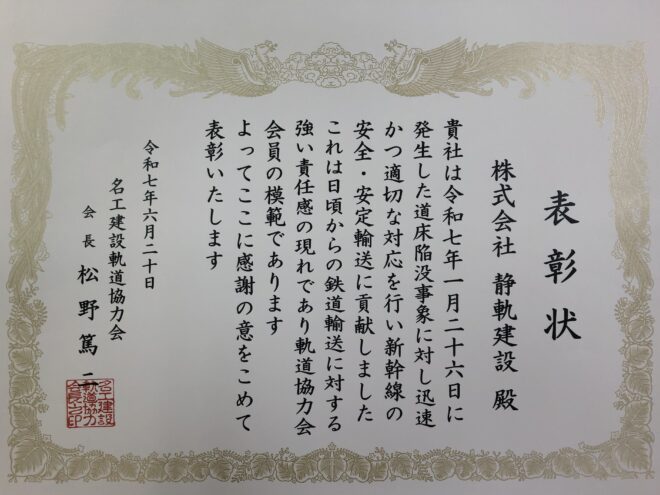 表彰状
株式会社 静軌建設 殿
貴社は令和七年一月二十六日に
発生した道床陥没事象に対し迅速
かつ適切な対応を行い新幹線の
安全・安定輸送に貢献しました
これは日頃からの鉄道輸送に対する
強い責任感の現れであり軌道協力会
会員の模範であります
よってここに感謝の意をこめて
表彰いたします
令和七年六月二十日
名工建設軌道協力会
会長 松野篤二
名工建設
軌道協力
会長之印